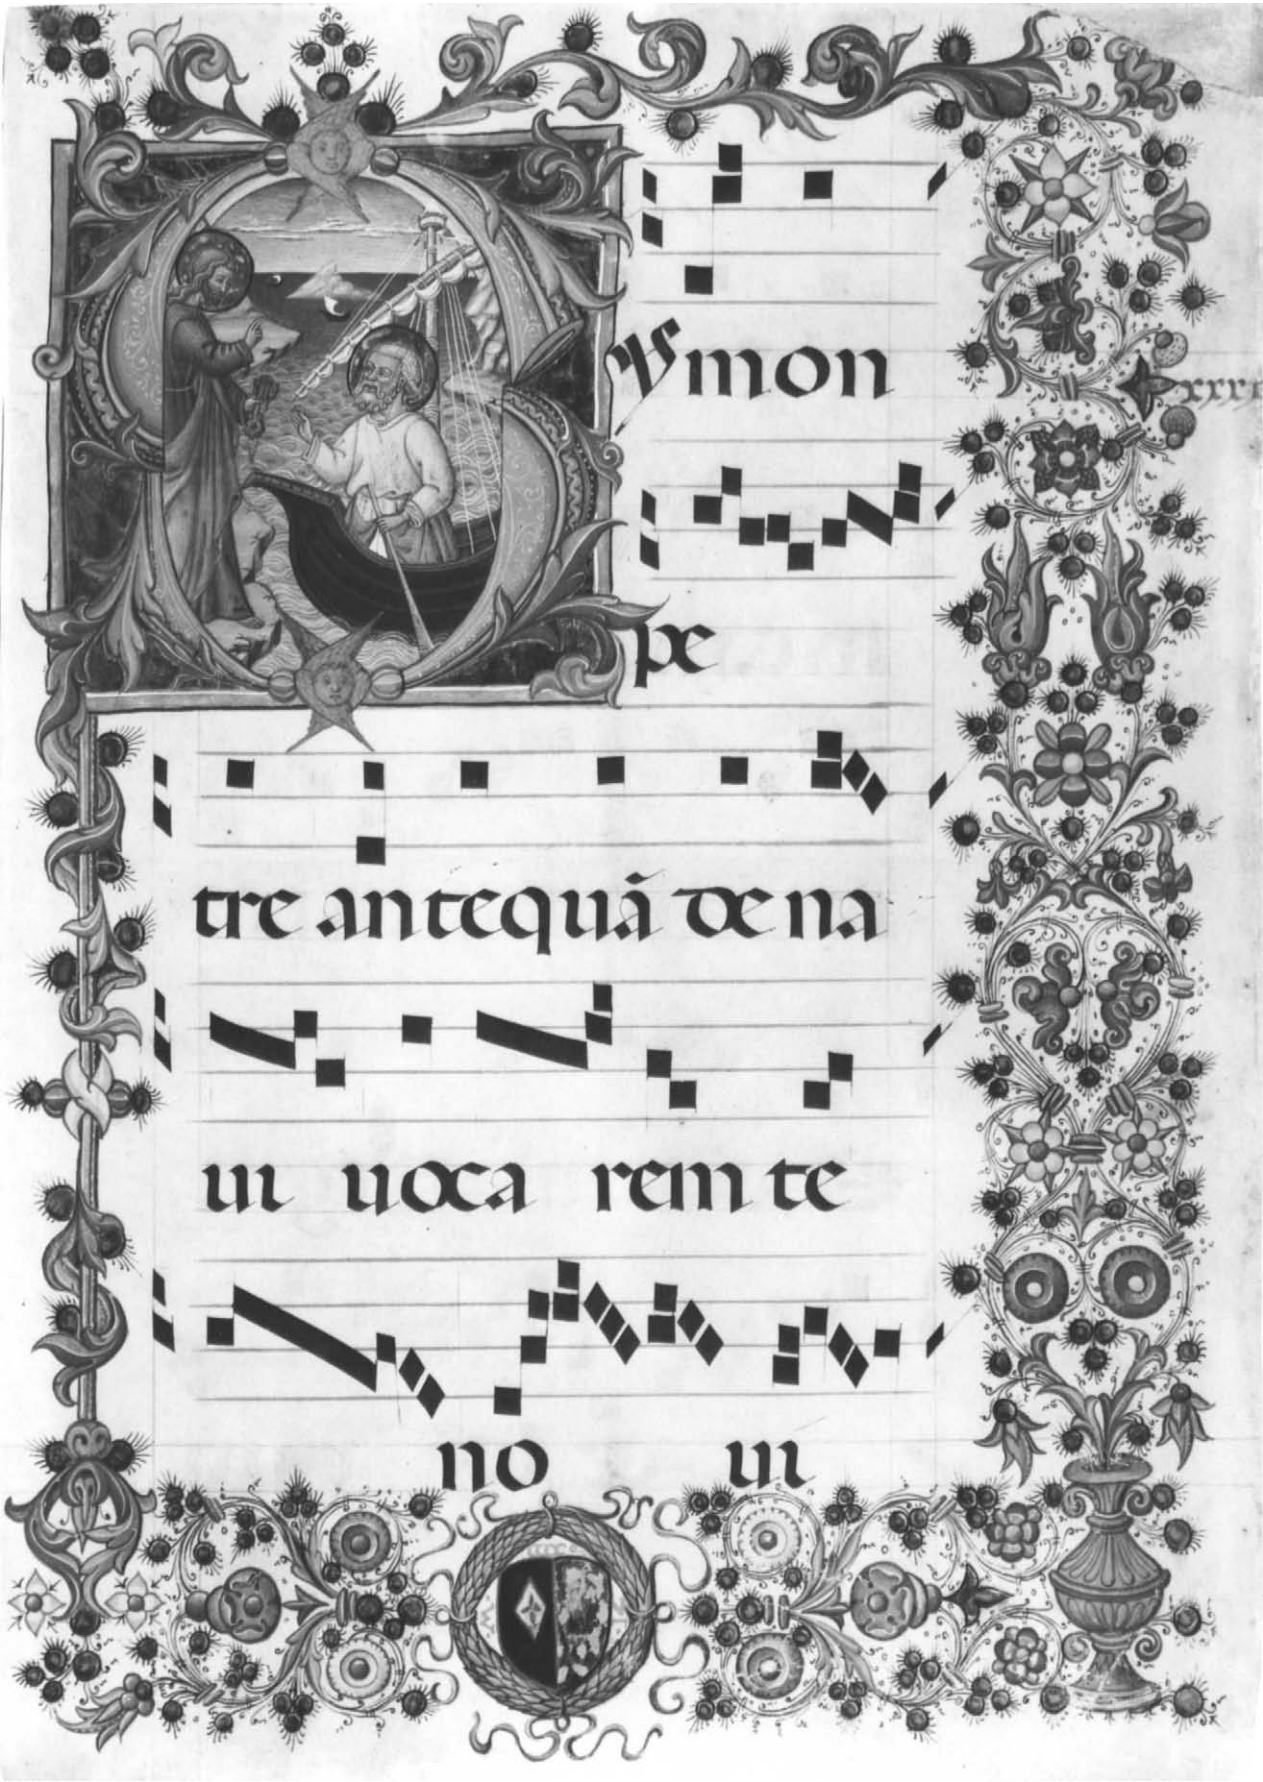 Symon
pe
tre antequā de na
ui uoca rem te
no ui